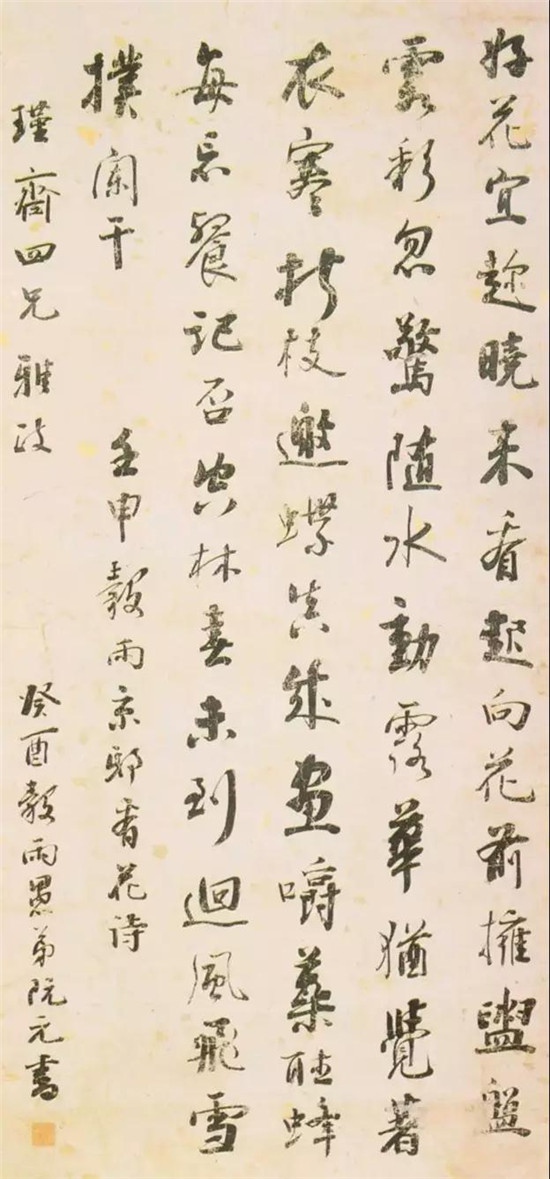 好花宜趂曉来看起向花前擁盥盤
霞彩忽驚随水動露華猶覺著
衣寒折枝邀蝶真成畫嚼蘂聽蜂
每忘餐記否空林春未到迴風飛雪
撲闌干 壬申穀雨京邸看花詩
瑾齋四兄雅政 癸酉穀雨愚弟阮元書